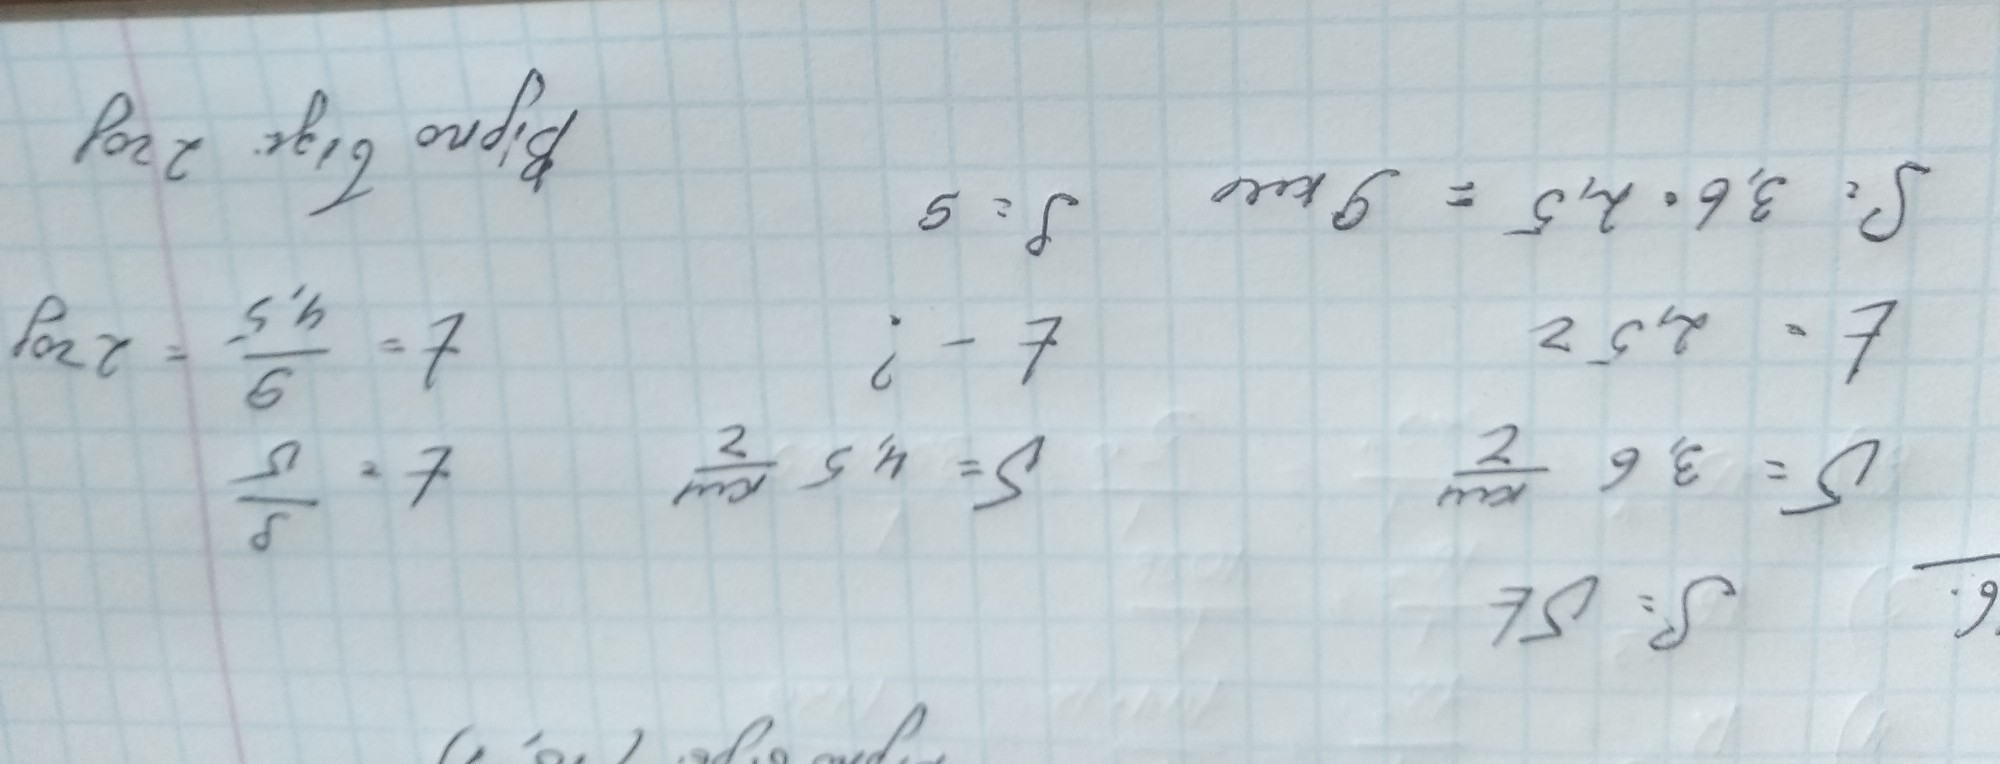 6. S = Vt
V = 3,6 км/г V = 4,5 км/г t = S/V
t = 2,5 г t - ? t = 9/4,5 = 2 год
S = 3,6 · 2,5 = 9 км S = 9
Вірно відп: 2 год